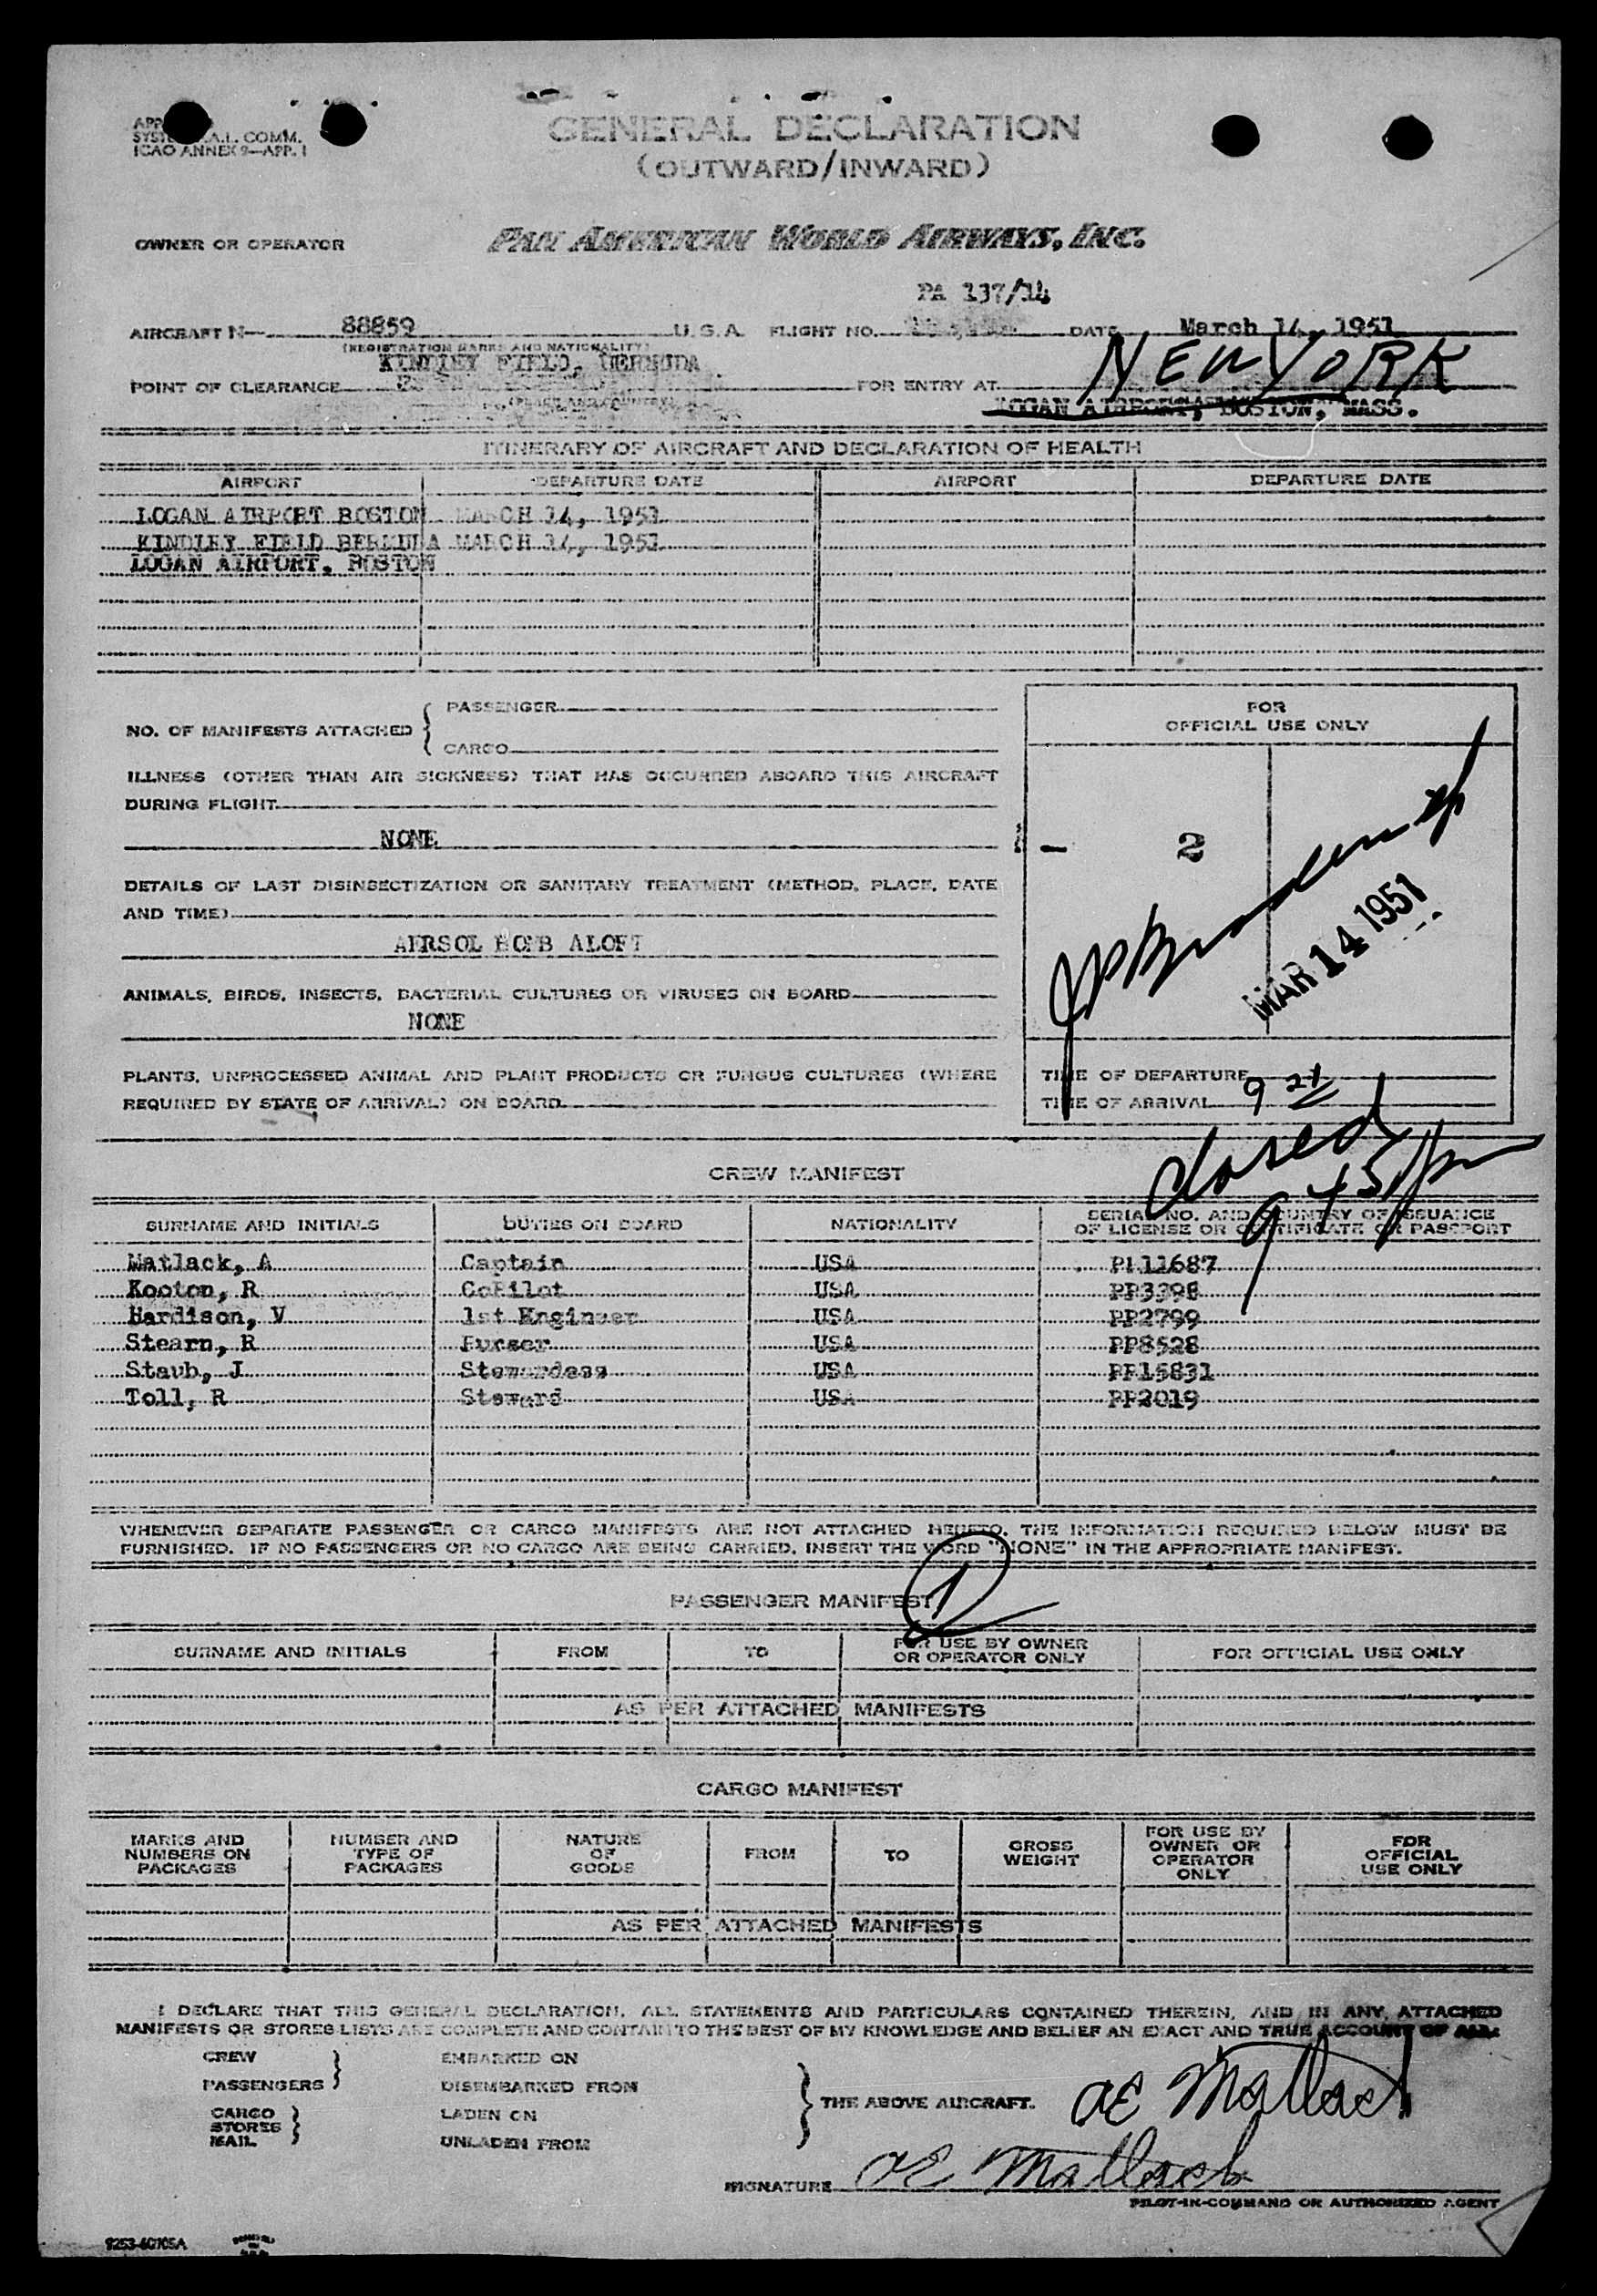 SYST A.I. COMM.
ICAO ANNEX 9—APP. 1
GENERAL DECLARATION
(OUTWARD/INWARD)
OWNER OR OPERATOR
PAN AMERICAN WORLD AIRWAYS, INC.
PA 137/14
AIRCRAFT N— 88859 U.S.A. FLIGHT NO. DATE March 14, 1951
(REGISTRATION MARKS AND NATIONALITY)
KINDLEY FIELD, BERMUDA
NEW YORK
POINT OF CLEARANCE FOR ENTRY AT
(PLACE AND COUNTRY)
LOGAN AIRPORT, BOSTON, MASS.
ITINERARY OF AIRCRAFT AND DECLARATION OF HEALTH
AIRPORT DEPARTURE DATE AIRPORT DEPARTURE DATE
LOGAN AIRPORT BOSTON MARCH 14, 1951
KINDLEY FIELD BERMUDA MARCH 14, 1951
LOGAN AIRPORT, BOSTON
NO. OF MANIFESTS ATTACHED { PASSENGER
CARGO
ILLNESS (OTHER THAN AIR SICKNESS) THAT HAS OCCURRED ABOARD THIS AIRCRAFT
DURING FLIGHT
NONE
DETAILS OF LAST DISINSECTIZATION OR SANITARY TREATMENT (METHOD, PLACE, DATE
AND TIME)
AERSOL BOMB ALOFT
ANIMALS, BIRDS, INSECTS, BACTERIAL CULTURES OR VIRUSES ON BOARD
NONE
PLANTS, UNPROCESSED ANIMAL AND PLANT PRODUCTS OR FUNGUS CULTURES (WHERE
REQUIRED BY STATE OF ARRIVAL) ON BOARD
FOR
OFFICIAL USE ONLY
— 2
MAR 14 1951
TIME OF DEPARTURE
TIME OF ARRIVAL 9 21
closed
9 45 pm
CREW MANIFEST
SURNAME AND INITIALS DUTIES ON BOARD NATIONALITY SERIAL NO. AND COUNTRY OF ISSUANCE
OF LICENSE OR CERTIFICATE OR PASSPORT
Matlack, A Captain USA PP11687
Kooton, R CoPilot USA PP3398
Hardison, V 1st Engineer USA PP2799
Stearn, R Purser USA PP8528
Staub, J Stewardess USA PP15831
Toll, R Steward USA PP2019
WHENEVER SEPARATE PASSENGER OR CARGO MANIFESTS ARE NOT ATTACHED HERETO, THE INFORMATION REQUIRED BELOW MUST BE
FURNISHED. IF NO PASSENGERS OR NO CARGO ARE BEING CARRIED, INSERT THE WORD "NONE" IN THE APPROPRIATE MANIFEST.
PASSENGER MANIFEST 1
SURNAME AND INITIALS FROM TO FOR USE BY OWNER
OR OPERATOR ONLY FOR OFFICIAL USE ONLY
AS PER ATTACHED MANIFESTS
CARGO MANIFEST
MARKS AND
NUMBERS ON
PACKAGES
NUMBER AND
TYPE OF
PACKAGES
NATURE
OF
GOODS
FROM
TO
GROSS
WEIGHT
FOR USE BY
OWNER OR
OPERATOR
ONLY
FOR
OFFICIAL
USE ONLY
AS PER ATTACHED MANIFESTS
I DECLARE THAT THIS GENERAL DECLARATION, ALL STATEMENTS AND PARTICULARS CONTAINED THEREIN, AND IN ANY ATTACHED
MANIFESTS OR STORES LISTS ARE COMPLETE AND CONTAIN TO THE BEST OF MY KNOWLEDGE AND BELIEF AN EXACT AND TRUE ACCOUNT OF ALL:
CREW
PASSENGERS }
EMBARKED ON
DISEMBARKED FROM
CARGO
STORES
MAIL }
LADEN ON
UNLADEN FROM
} THE ABOVE AIRCRAFT.
AE Matlack
SIGNATURE AE Matlack
PILOT-IN-COMMAND OR AUTHORIZED AGENT
9253-60705A